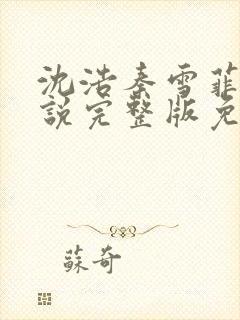 沈浩秦雪菲
說完整版免
蘇奇